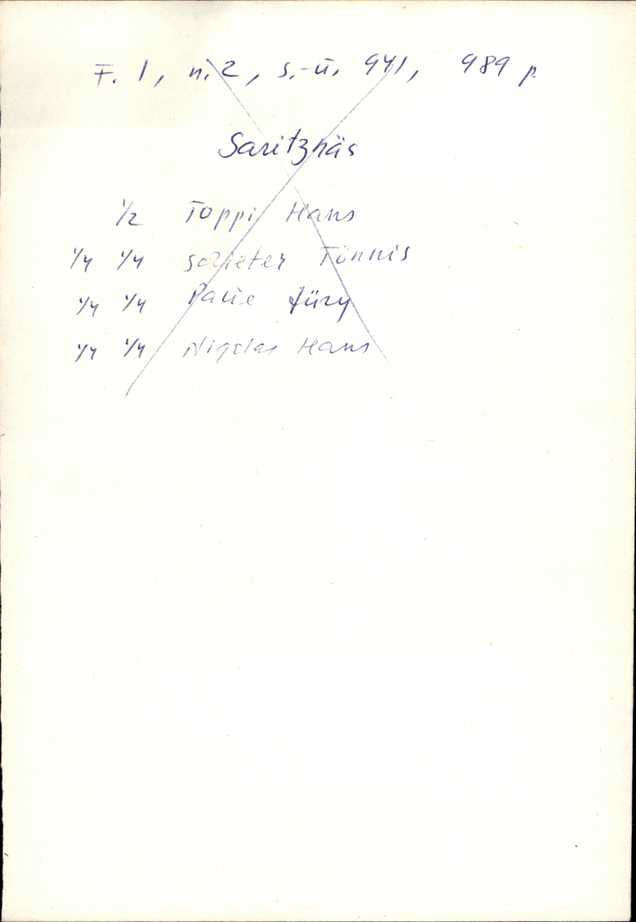 F. 1, n. 2, s.-ü. 941, 989 p.
Saritznäs
1/2 Toppi Hans
1/4 1/4 Tönnis
1/4 1/4 Jüry
1/4 1/4 Nigolas Hans